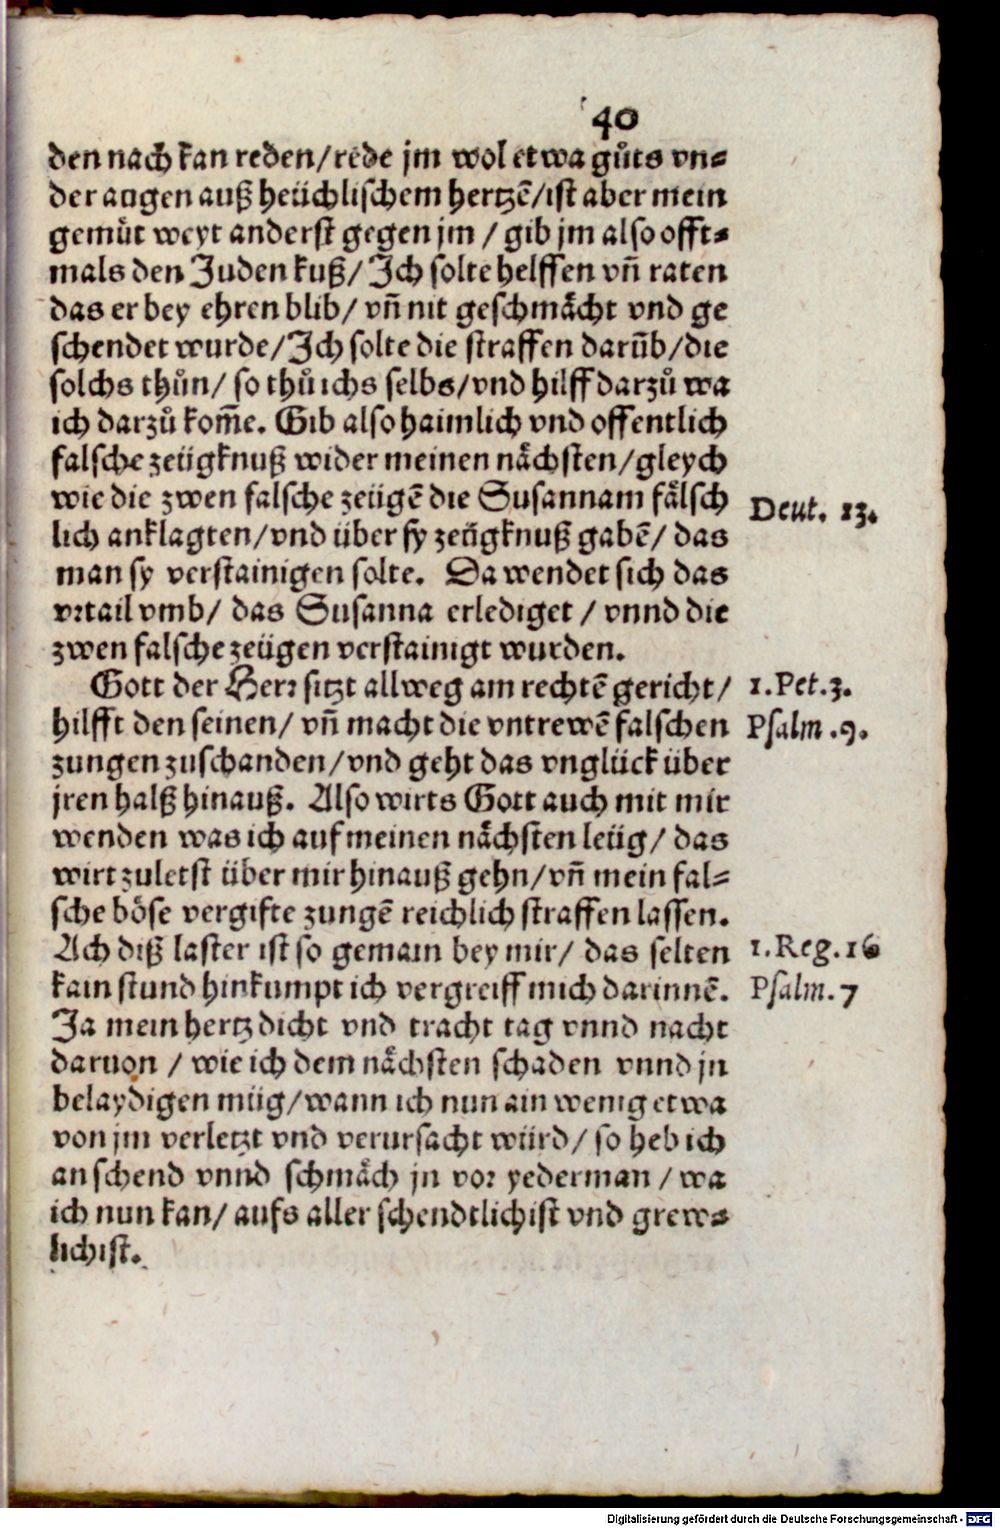 40
den nach kan reden/rede jm wol etwa gůts vn⸗
der augen auß heüchlischem hertzē/ist aber mein
gemůt weyt anderst gegen jm / gib jm also offt⸗
mals den Juden kuß/Ich solte helffen vñ raten
das er bey ehren blib/ vñ nit geschmächt vnd ge
schendet wurde/Ich solte die straffen darūb/die
solchs thůn/ so thů ichs selbs/vnd hilff darzů wa
ich darzů kom̄e. Gib also haimlich vnd offentlich
falsche zeügknuß wider meinen nächsten/gleych
wie die zwen falsche zeügē die Susannam fälsch
Deut. 13.
lich anklagten/vnd über sy zeügknuß gabē/ das
man sy verstainigen solte. Da wendet sich das
vrtail vmb/ das Susanna erlediget / vnnd die
zwen falsche zeügen verstainigt wurden.
Gott der Herr sitzt allweg am rechtē gericht/
1. Pet. 3.
hilfft den seinen/ vñ macht die vntrewē falschen
Psalm .9.
zungen zuschanden/vnd geht das vnglück über
jren halß hinauß. Also wirts Gott auch mit mir
wenden was ich auf meinen nächsten leüg/ das
wirt zuletst über mir hinauß gehn/vñ mein fal⸗
sche böse vergifte zungē reichlich straffen lassen.
Ach diß laster ist so gemain bey mir/ das selten
1. Reg. 16
kain stund hinkumpt ich vergreiff mich darinnē.
Psalm. 7
Ja mein hertz dicht vnd tracht tag vnnd nacht
daruon / wie ich dem nächsten schaden vnnd jn
belaydigen müg/wann ich nun ain wenig etwa
von jm verletzt vnd verursacht würd/ so heb ich
an schend vnnd schmäch jn vor yederman / wa
ich nun kan/ aufs aller schendtlichist vnd grew⸗
lichist.
Digitalisierung gefördert durch die Deutsche Forschungsgemeinschaft - DFG